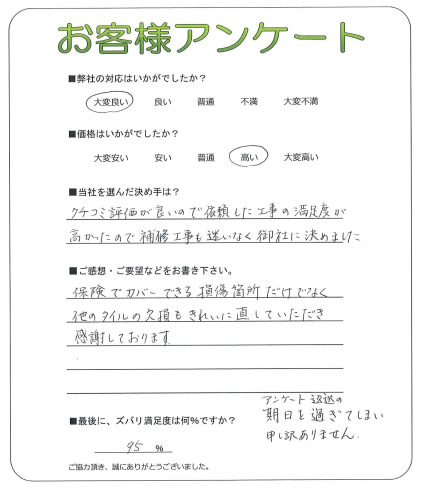 お客様アンケート
■弊社の対応はいかがでしたか？
大変良い 良い 普通 不満 大変不満
■価格はいかがでしたか？
大変安い 安い 普通 高い 大変高い
■当社を選んだ決め手は？
クチコミ評価が良いので依頼した工事の満足度が
高かったので補修工事も迷いなく御社に決めました
■ご感想・ご要望などをお書き下さい。
保険でカバーできる損傷箇所だけでなく
他のタイルの欠損もきれいに直していただき
感謝しております
■最後に、ズバリ満足度は何%ですか？
95 %
アンケート返送の
期日を過ぎてしまい
申し訳ありません.
ご協力頂き、誠にありがとうございました。